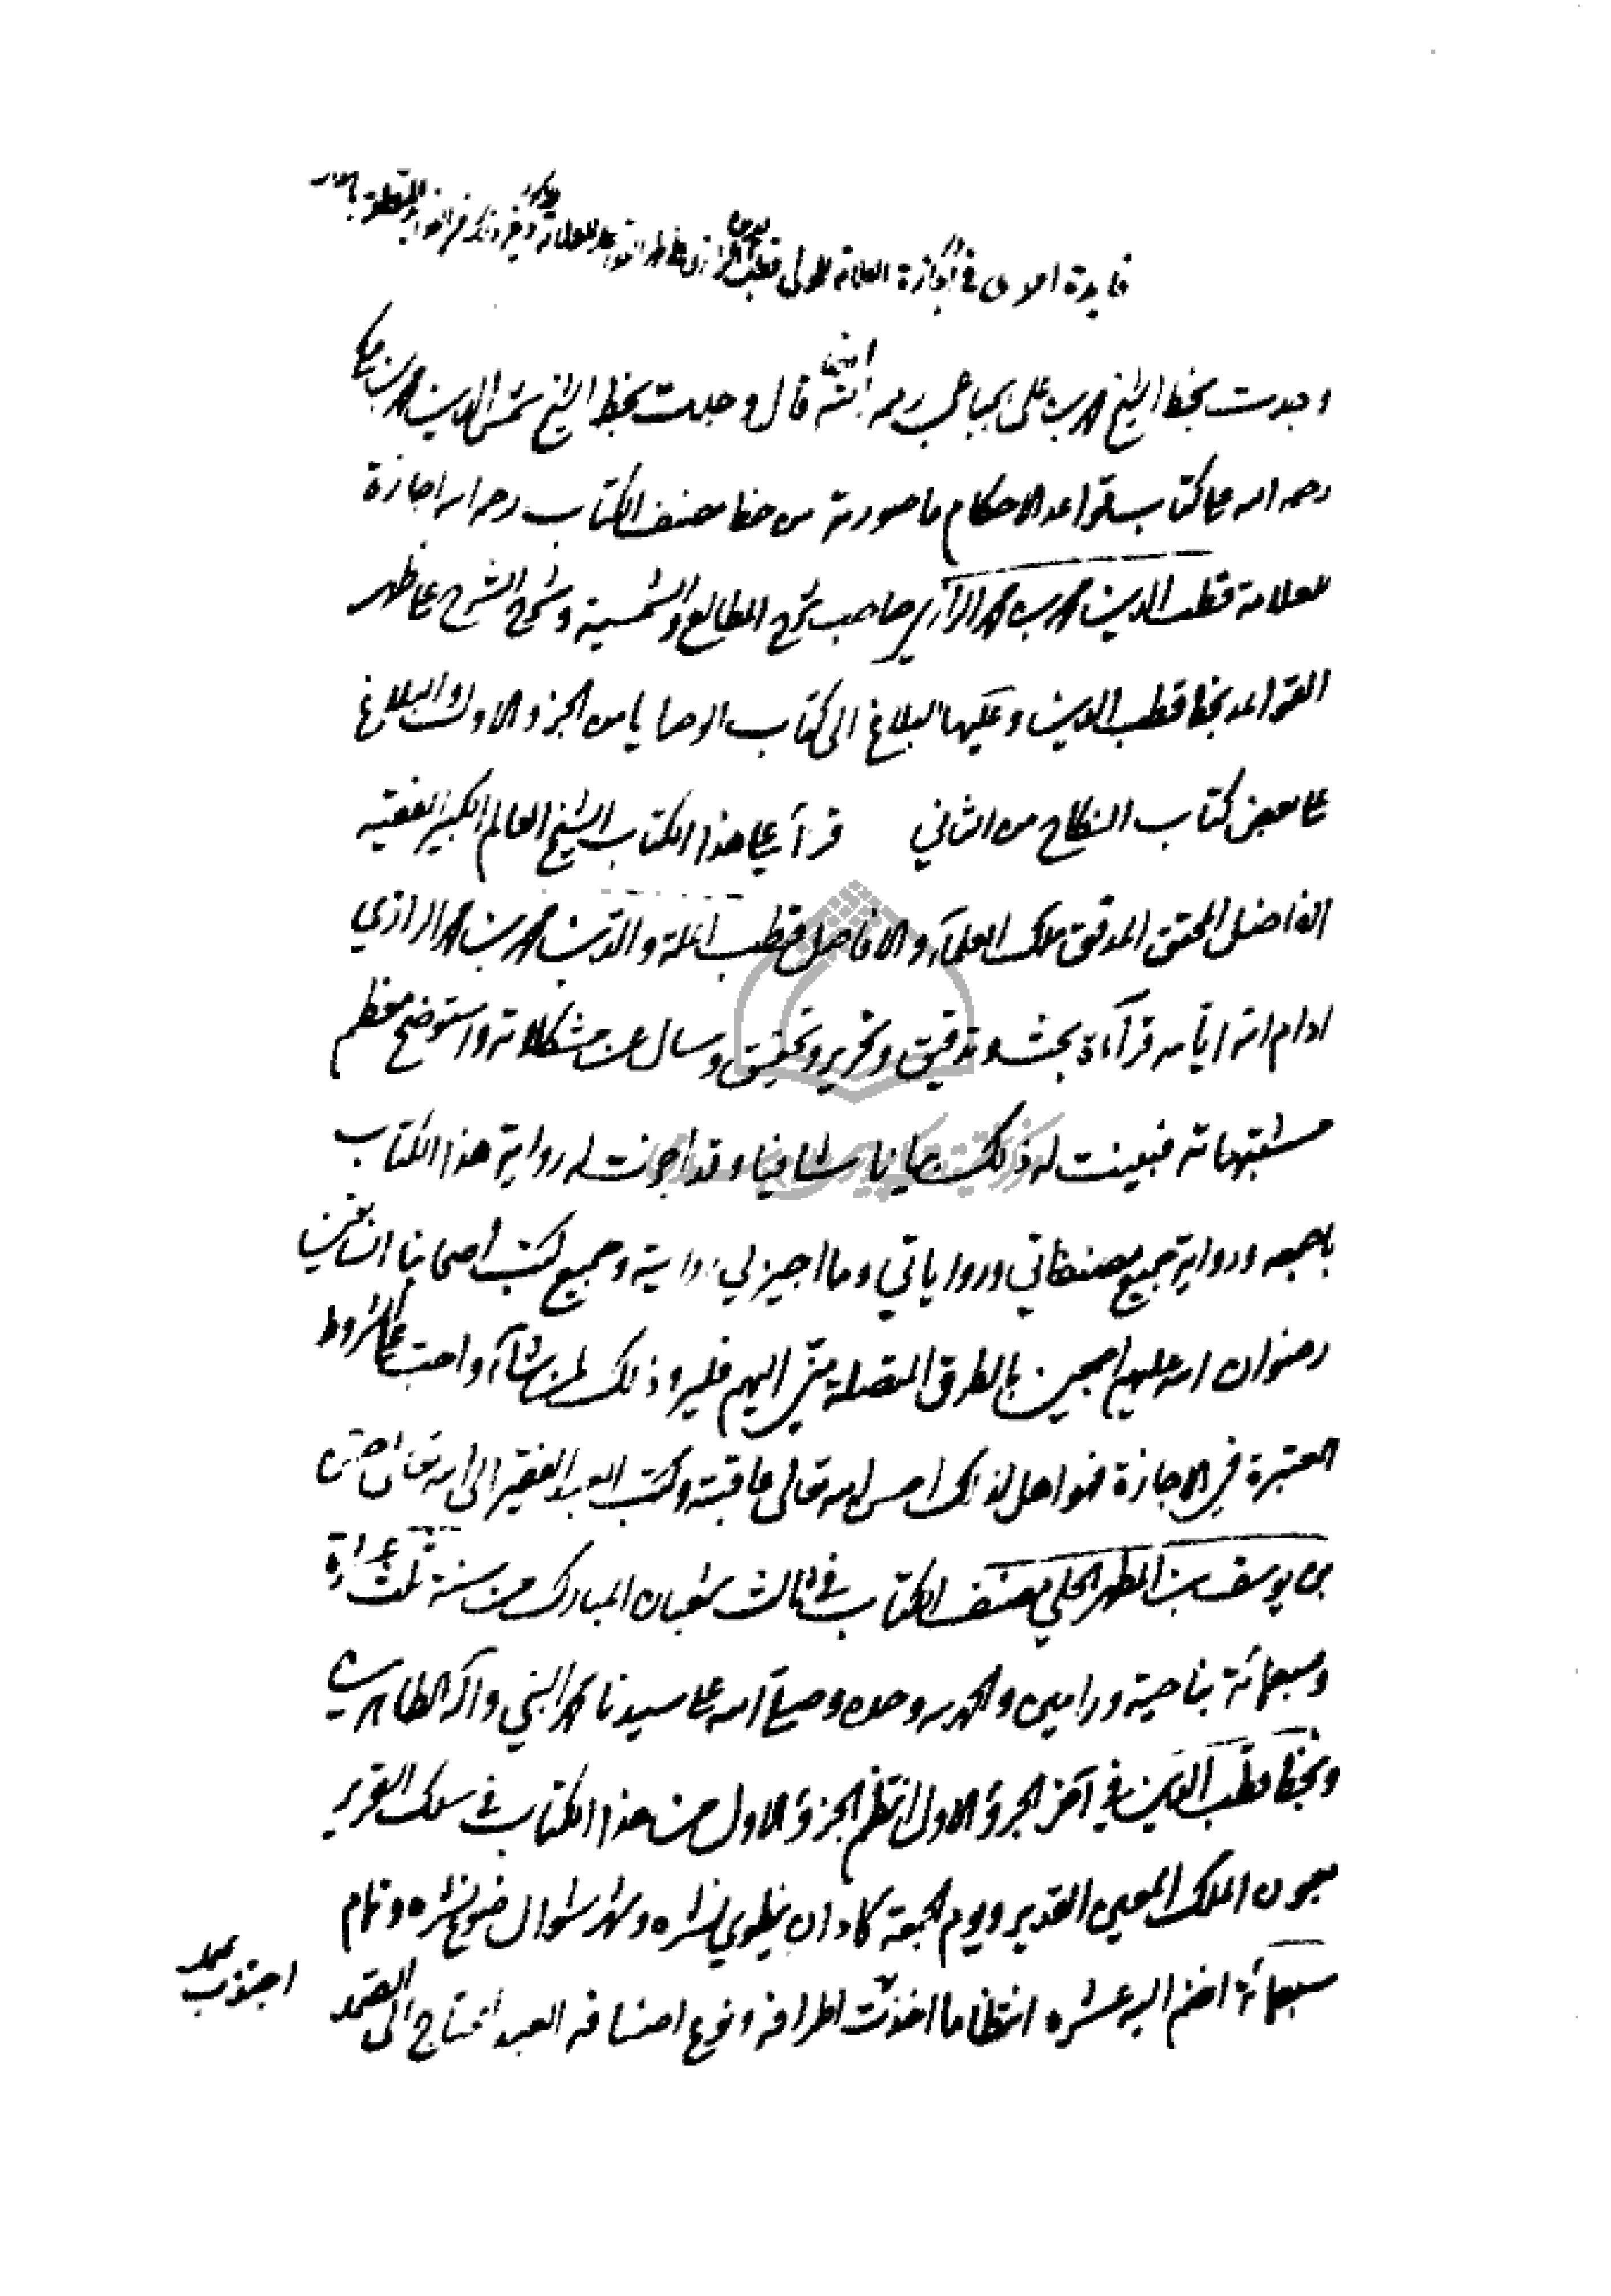 فايدة اخرى في اجازة العلامة للمولى قطب الدين
وجدت بخط الشيخ محمد بن علي الجباعي رحمه الله ايضا قال وجدت بخط الشيخ شمس الدين محمد بن مكي
رحمه الله على كتاب قواعد الاحكام ما صورته من خط مصنف الكتاب رحمه الله اجازة
للعلامة قطب الدين محمد بن محمد الرازي صاحب شرح المطالع والشمسية وشرح الشرح على ظهر
القواعد بخط قطب الدين وعليها البلاغ الى كتاب الوصايا من الجزء الاول والبلاغ
على بعض كتاب النكاح من الثاني قرأ علي هذا الكتاب الشيخ العالم الكبير الفقيه
الفاضل المحقق المدقق ملك العلماء والافاضل قطب الملة والدين محمد بن محمد الرازي
ادام الله ايامه قرآءة بحث وتدقيق وتحرير وتحقيق وسال عن مشكلاته واستوضح معظم
مشتبهاته فبينت له ذلك بيانا شافيا وقد اجزت له رواية هذا الكتاب
باجمعه ورواية جميع مصنفاتي ورواياتي وما اجيز لي روايته وجميع كتب اصحابنا السابقين
رضوان الله عليهم اجمعين بالطرق المتصلة مني اليهم فليرو ذلك لمن شآء واحب على الشروط
المعتبرة في الاجازة فهو اهل لذلك احسن الله تعالى عاقبته وكتب العبد الفقير الى الله تعالى حسن
بن يوسف بن المطهر الحلي مصنف الكتاب في ثالث شعبان المبارك من سنة ثلث عشرة
وسبعمائة بناحية ورامين والحمد لله وحده وصلى الله على سيدنا محمد النبي وآله الطاهرين
وبخط قطب الدين في آخر الجزؤ الاول انتظم الجزؤ الاول من هذا الكتاب في سلك التحرير
بعون الملك المعين القدير ويوم الجمعة كاد ان ينطوي نشره وشهر شوال ضوع نشره وتمام
سبعمائة انضم اليه عشره انتظاما اخذت اطرافه ونوع اصنافه العبد المحتاج الى الصمد